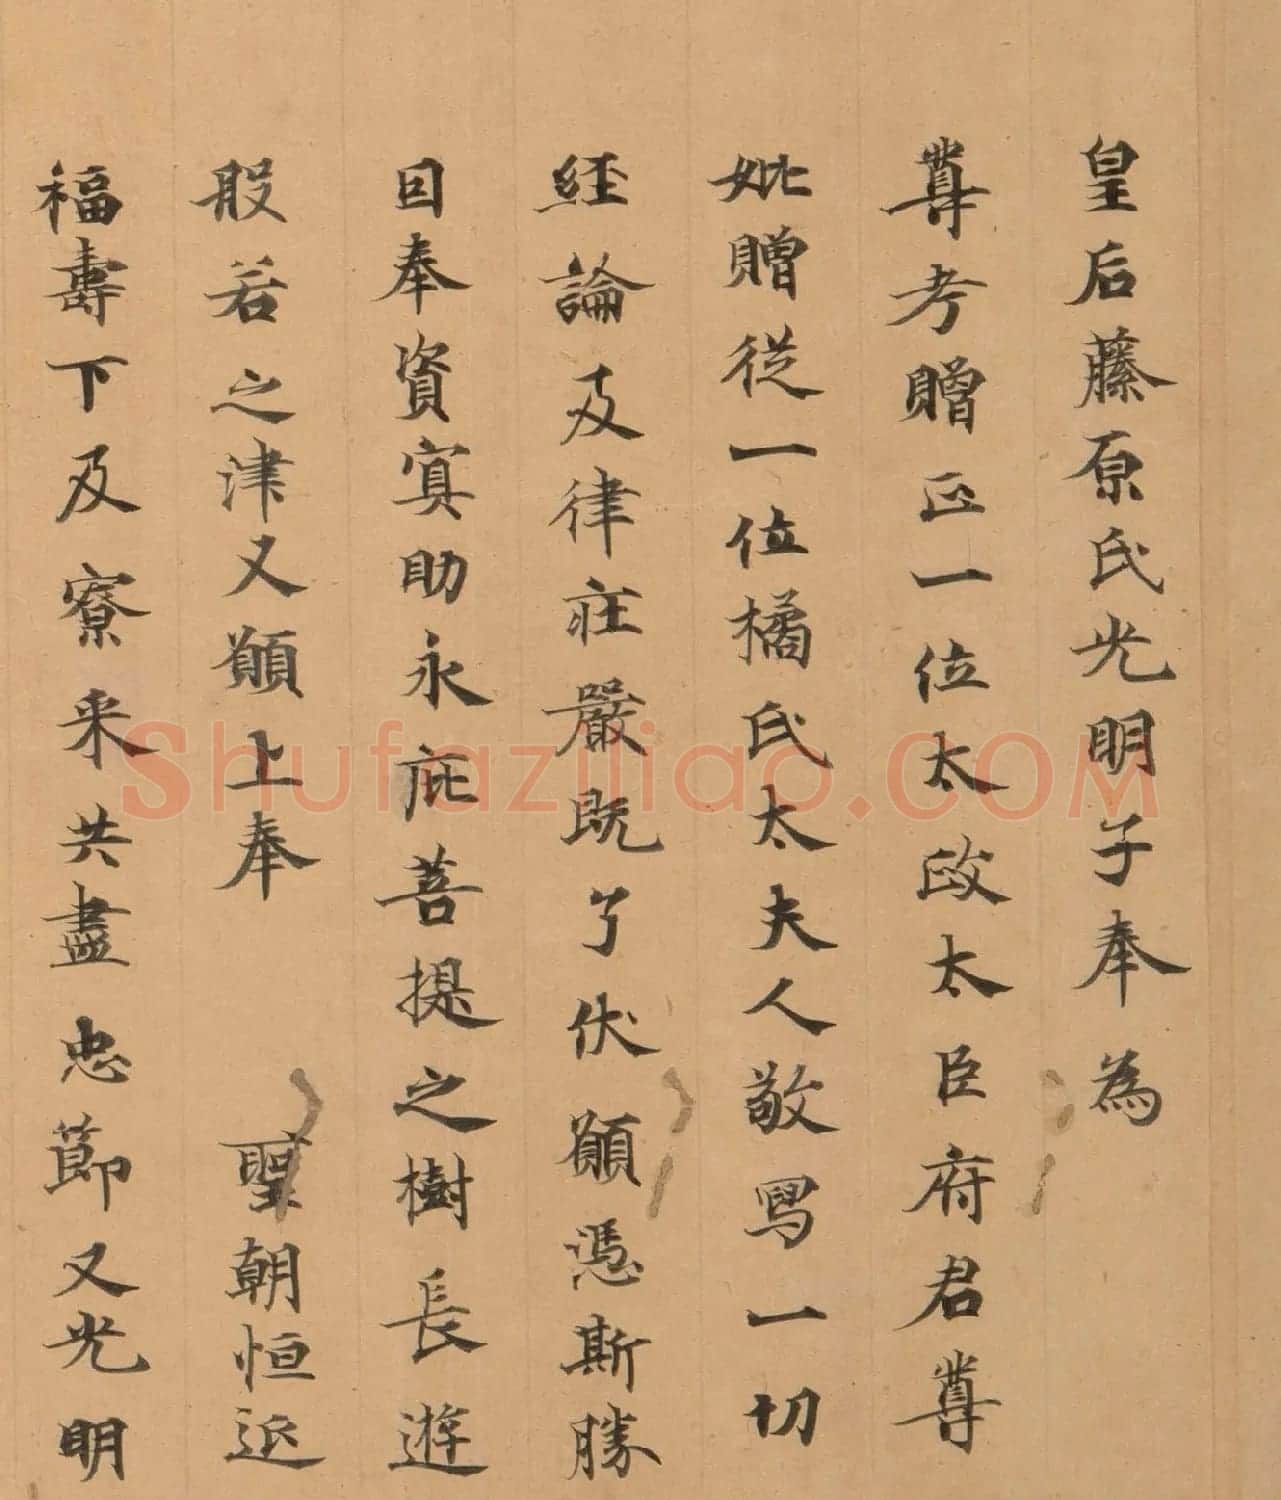 皇后藤原氏光明子奉為
尊考贈正一位太政太臣府君尊
妣贈從一位橘氏太夫人敬寫一切
經論及律莊嚴既了伏願憑斯勝
因奉資冥助永庇菩提之樹長遊
般若之津又願上奉 聖朝恒延
福壽下及寮采共盡忠節又光明
Shufaziliao.COM